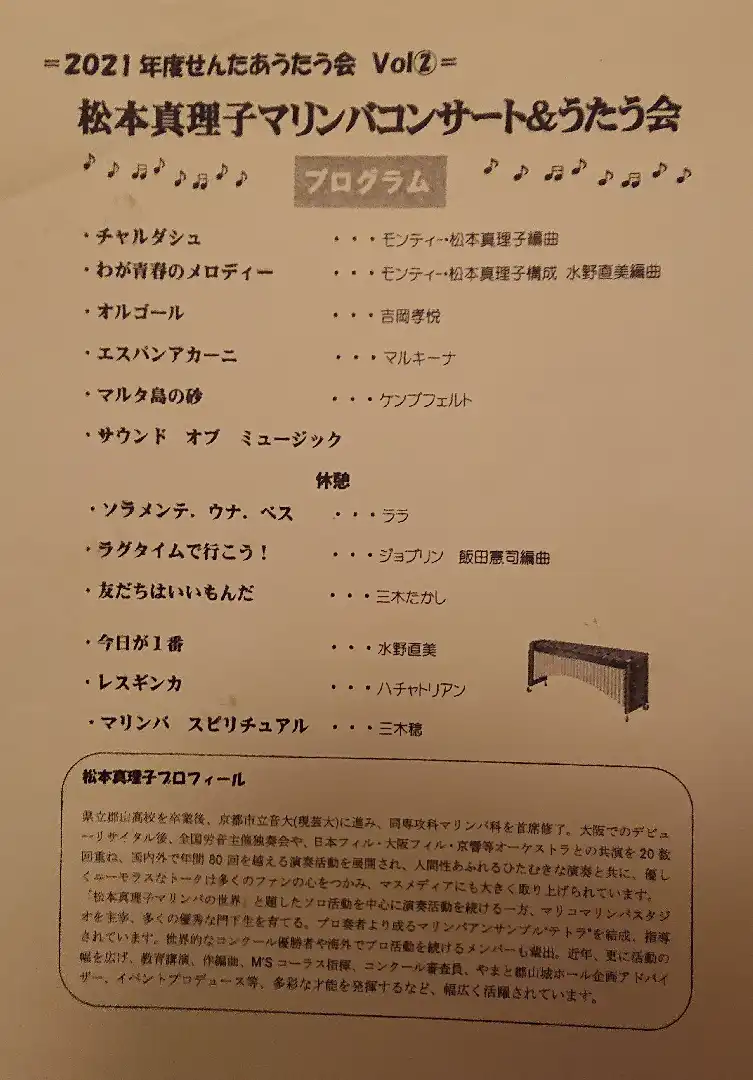 =2021年度せんたあうたう会 Vol②=
松本真理子マリンバコンサート&うたう会
プログラム
・チャルダシュ ・・・モンティー・松本真理子編曲
・わが青春のメロディー ・・・モンティー・松本真理子構成 水野直美編曲
・オルゴール ・・・吉岡孝悦
・エスパンアカーニ ・・・マルキーナ
・マルタ島の砂 ・・・ケンプフェルト
・サウンド オブ ミュージック
休憩
・ソラメンテ．ウナ．ベス ・・・ララ
・ラグタイムで行こう！ ・・・ジョプリン 飯田憲司編曲
・友だちはいいもんだ ・・・三木たかし
・今日が１番 ・・・水野直美
・レスギンカ ・・・ハチャトリアン
・マリンバ スピリチュアル ・・・三木稔
松本真理子プロフィール
県立郡山高校を卒業後、京都市立音大(現芸大)に進み、同専攻科マリンバ科を首席修了。大阪でのデビュ
ーリサイタル後、全国労音主催独奏会や、日本フィル・大阪フィル・京響等オーケストラとの共演を20数
回重ね、国内外で年間80回を越える演奏活動を展開され、人間性あふれるひたむきな演奏と共に、優し
くユーモラスなトークは多くのファンの心をつかみ、マスメディアにも大きく取り上げられています。
「松本真理子マリンバの世界」と題したソロ活動を中心に演奏活動を続ける一方、マリコマリンバスタジ
オを主宰、多くの優秀な門下生を育てる。プロ奏者より成るマリンバアンサンブル"テトラ"を結成、指導
されています。世界的なコンクール優勝者や海外でプロ活動を続けるメンバーも輩出。近年、更に活動の
幅を広げ、教育講演、作編曲、M'Sコーラス指揮、コンクール審査員、やまと郡山城ホール企画アドバイ
ザー、イベントプロデュース等、多彩な才能を発揮するなど、幅広く活躍されています。